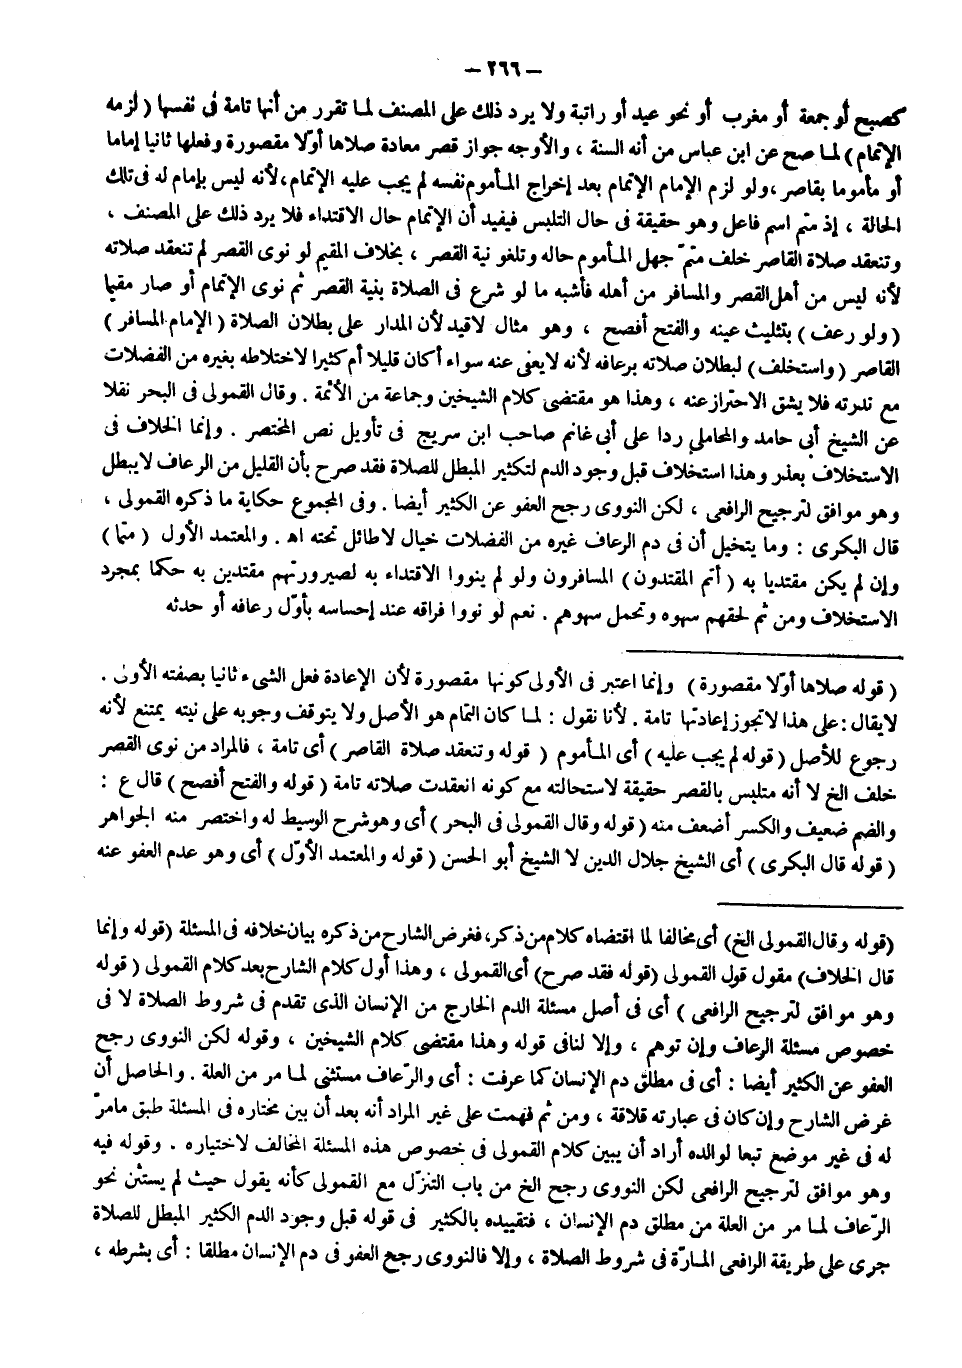 — ٢٦٦ —
كصبح أو جمعة أو مغرب أو نحو عيد أو راتبة ولا يرد ذلك على المصنف لما تقرر من أنها تامة فى نفسها (لزمه
الإتمام) لما صح عن ابن عباس من أنه السنة ، والأوجه جواز قصر معادة صلاها أوّلا مقصورة وفعلها ثانيا إماما
أو مأموما بقاصر ، ولو لزم الإمام الإتمام بعد إخراج المأموم نفسه لم يجب عليه الإتمام ، لأنه ليس بإمام له فى تلك
الحالة ، إذ متم اسم فاعل وهو حقيقة فى حال التلبس فيفيد أن الإتمام حال الاقتداء فلا يرد ذلك على المصنف ،
وتنعقد صلاة القاصر خلف متمّ جهل المأموم حاله وتلغو نية القصر ، بخلاف المقيم لو نوى القصر لم تنعقد صلاته
لأنه ليس من أهل القصر والمسافر من أهله فأشبه ما لو شرع فى الصلاة بنية القصر ثم نوى الإتمام أو صار مقيما
(ولو رعف) بتثليث عينه والفتح أفصح ، وهو مثال لاقيد لأن المدار على بطلان الصلاة (الإمام المسافر)
القاصر (واستخلف) لبطلان صلاته برعافه لأنه لايعفى عنه سواء أكان قليلا أم كثيرا لاختلاطه بغيره من الفضلات
مع ندرته فلا يشق الاحتراز عنه ، وهذا هو مقتضى كلام الشيخين وجماعة من الأئمة . وقال القمولى فى البحر نقلا
عن الشيخ أبى حامد والمحاملى ردا على أبى غانم صاحب ابن سريج فى تأويل نص المختصر . وإنما الخلاف فى
الاستخلاف بعذر وهذا استخلاف قبل وجود الدم لتكثير المبطل للصلاة فقد صرح بأن القليل من الرعاف لايبطل
وهو موافق لترجيح الرافعى ، لكن النووى رجح العفو عن الكثير أيضا . وفى المجموع حكاية ما ذكره القمولى ،
قال البكرى : وما يتخيل أن فى دم الرعاف غيره من الفضلات خيال لاطائل تحته اهـ . والمعتمد الأول (متما)
وإن لم يكن مقتديا به (أتم المقتدون) المسافرون ولو لم ينووا الاقتداء به لصيرورتهم مقتدين به حكما بمجرد
الاستخلاف ومن ثم لحقهم سهوه وتحمل سهوهم . نعم لو نووا فراقه عند إحساسه بأوّل رعافه أو حدثه
(قوله صلاها أوّلا مقصورة) وإنما اعتبر فى الأولى كونها مقصورة لأن الإعادة فعل الشىء ثانيا بصفته الأولى .
لايقال : على هذا لاتجوز إعادتها تامة . لأنا نقول : لما كان التمام هو الأصل ولا يتوقف وجوبه على نيته يمتنع لأنه
رجوع للأصل (قوله لم يجب عليه) أى المأموم (قوله وتنعقد صلاة القاصر) أى تامة ، فالمراد من نوى القصر
خلف الخ لا أنه متلبس بالقصر حقيقة لاستحالته مع كونه انعقدت صلاته تامة (قوله والفتح أفصح) قال ع :
والضم ضعيف والكسر أضعف منه (قوله وقال القمولى فى البحر) أى وهو شرح الوسيط له واختصر منه الجواهر
(قوله قال البكرى) أى الشيخ جلال الدين لا الشيخ أبو الحسن (قوله والمعتمد الأوّل) أى وهو عدم العفو عنه
(قوله وقال القمولى الخ) أى مخالفا لما اقتضاه كلام من ذكر ، فغرض الشارح من ذكره بيان خلافه فى المسئلة (قوله وإنما
قال الخلاف) مقول قول القمولى (قوله فقد صرح) أى القمولى ، وهذا أول كلام الشارح بعد كلام القمولى (قوله
وهو موافق لترجيح الرافعى) أى فى أصل مسئلة الدم الخارج من الإنسان الذى تقدم فى شروط الصلاة لا فى
خصوص مسئلة الرعاف وإن توهم ، وإلا لنافى قوله وهذا مقتضى كلام الشيخين ، وقوله لكن النووى رجح
العفو عن الكثير أيضا : أى فى مطلق دم الإنسان كما عرفت : أى والرّعاف مستثنى لما مر من العلة . والحاصل أن
غرض الشارح وإن كان فى عبارته قلاقة ، ومن ثم فهمت على غير المراد أنه بعد أن بين مختاره فى المسئلة طبق مامرّ
له فى غير موضع تبعا لوالده أراد أن يبين كلام القمولى فى خصوص هذه المسئلة المخالف لاختياره . وقوله فيه
وهو موافق لترجيح الرافعى لكن النووى رجح الخ من باب التنزّل مع القمولى كأنه يقول حيث لم يستثن نحو
الرّعاف لما مر من العلة من مطلق دم الإنسان ، فتقييده بالكثير فى قوله قبل وجود الدم الكثير المبطل للصلاة
جرى على طريقة الرافعى المارّة فى شروط الصلاة ، وإلا فالنووى رجح العفو فى دم الإنسان مطلقا : أى بشرطه ،